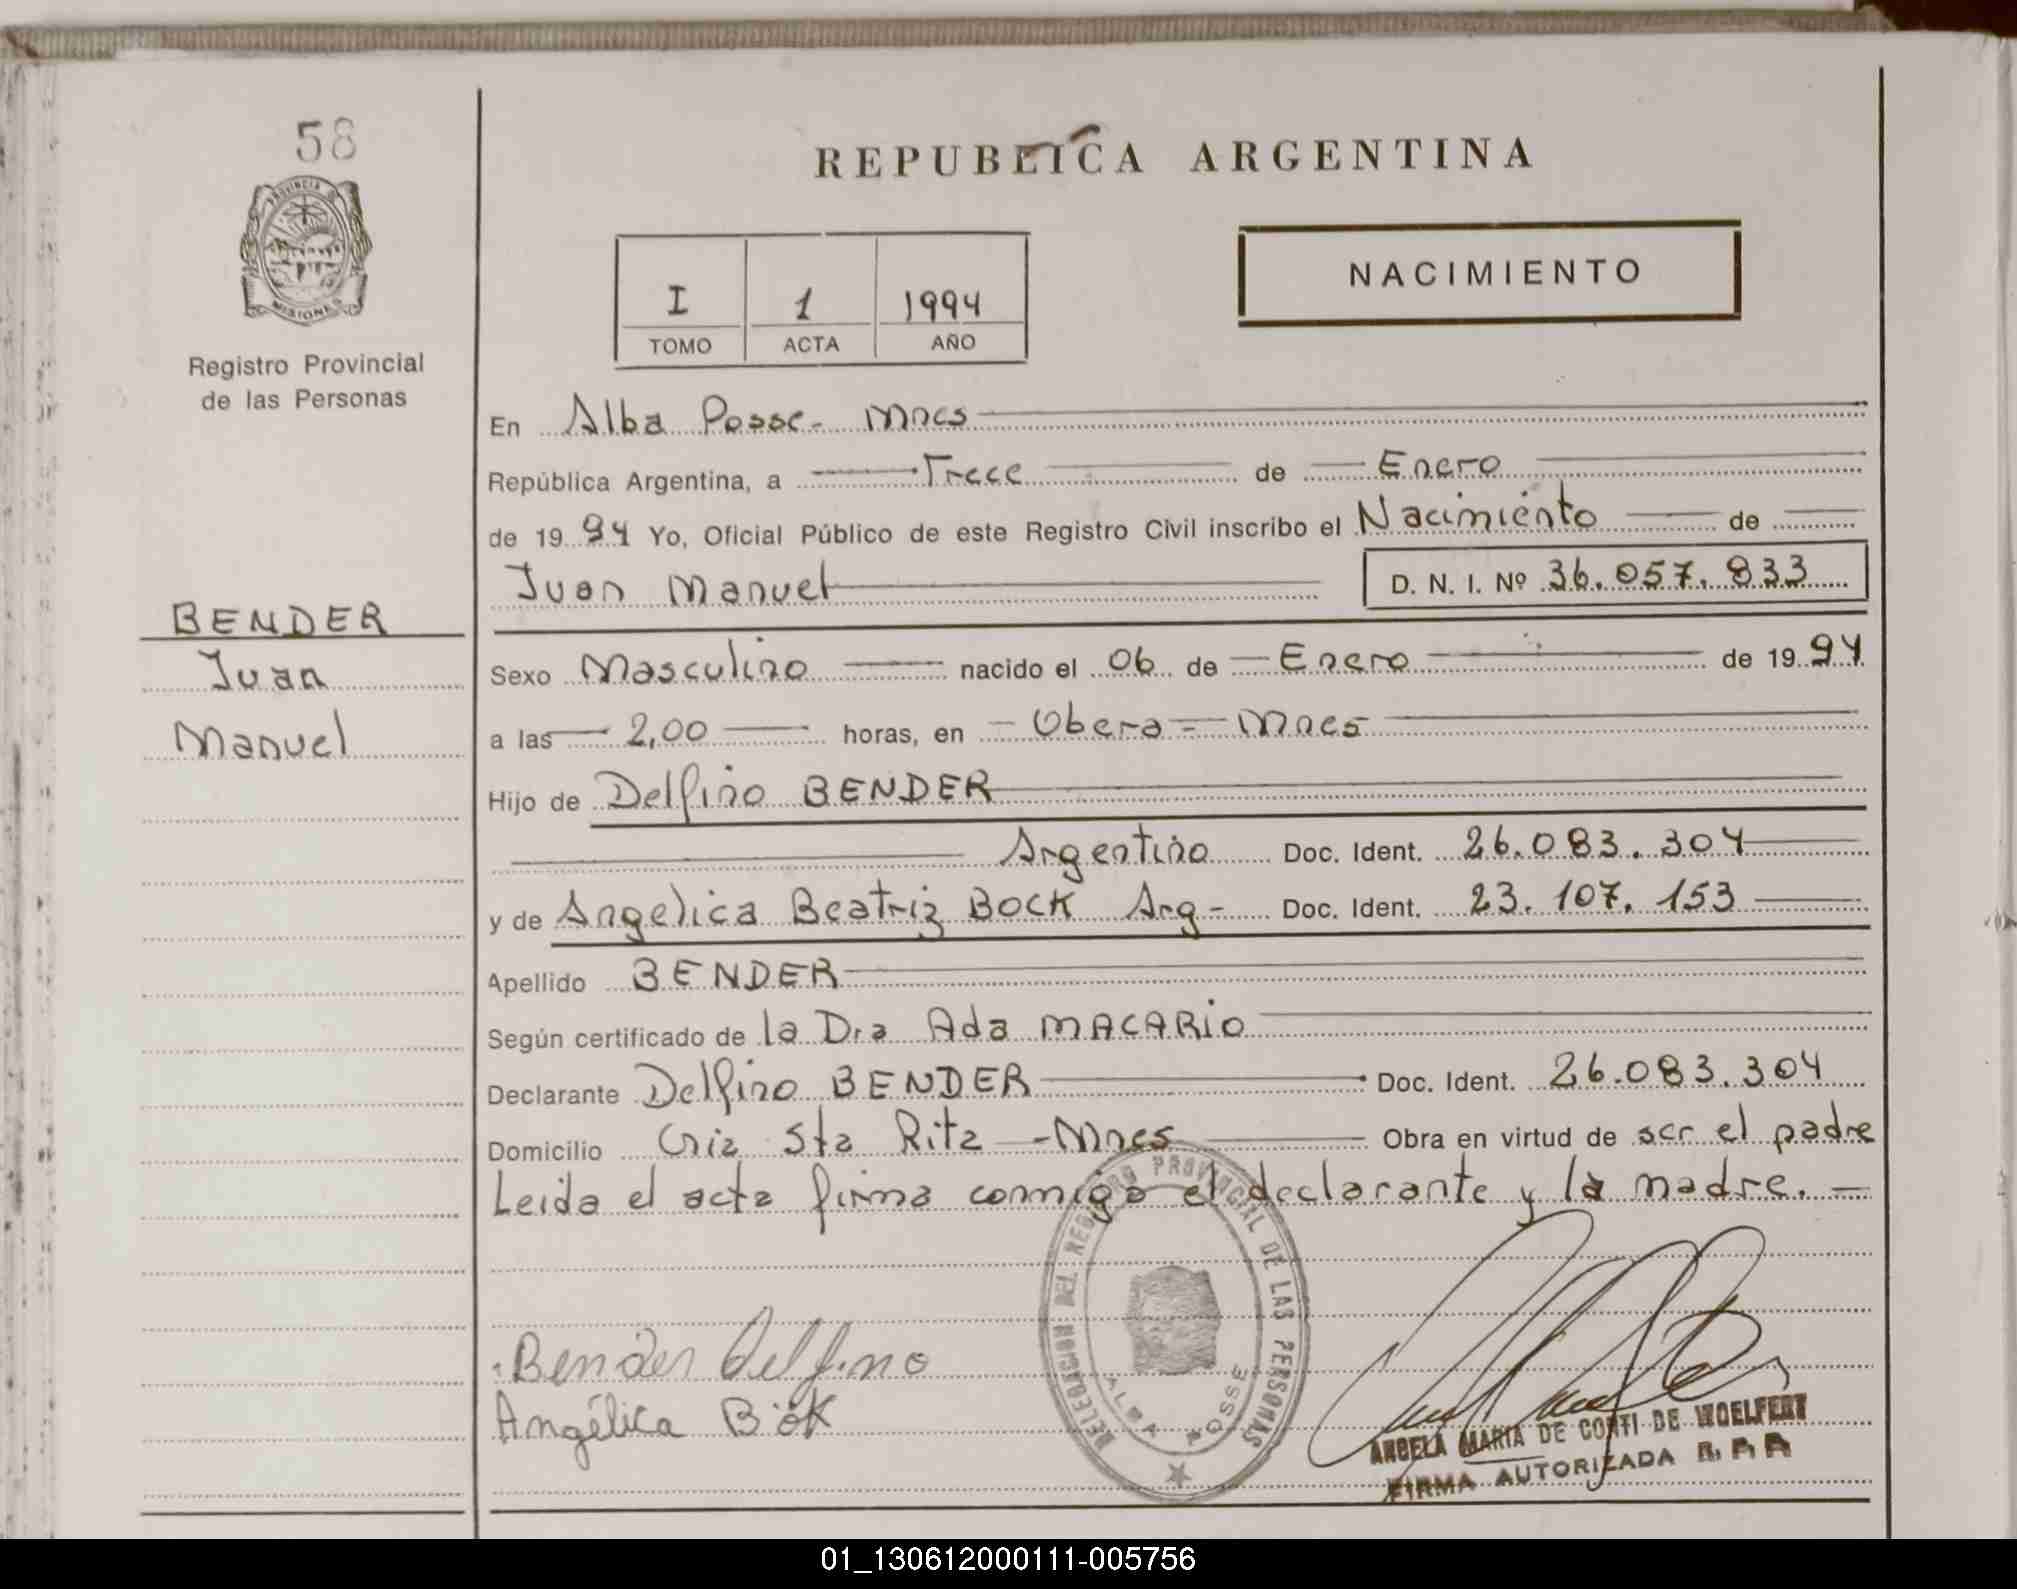 58
PROVINCIA DE
MISIONES
Registro Provincial
de las Personas
BENDER
Juan
Manuel
REPUBLICA ARGENTINA
I 1 1994
TOMO ACTA AÑO
NACIMIENTO
En Alba Posse - Mnes
República Argentina, a Trece de Enero
de 1994 Yo, Oficial Público de este Registro Civil inscribo el Nacimiento de
Juan Manuel D. N. I. Nº 36.057.833
Sexo Masculino nacido el 06 de Enero de 1994
a las 2,00 horas, en Obera - Mnes
Hijo de Delfino BENDER
Argentino Doc. Ident. 26.083.304
y de Angelica Beatriz BOCK Arg- Doc. Ident. 23.107.153
Apellido BENDER
Según certificado de la Dra Ada MACARIO
Declarante Delfino BENDER Doc. Ident. 26.083.304
Domicilio Cnia Sta Rita - Mnes Obra en virtud de ser el padre
Leida el acta firma conmigo el declarante y la madre.
DELEGACION DEL REGISTRO PROVINCIAL DE LAS PERSONAS
ALBA POSSE
Bender Delfino
Angélica Bök
ANGELA MARIA DE CONTI DE WOELFERT
FIRMA AUTORIZADA
01_130612000111-005756